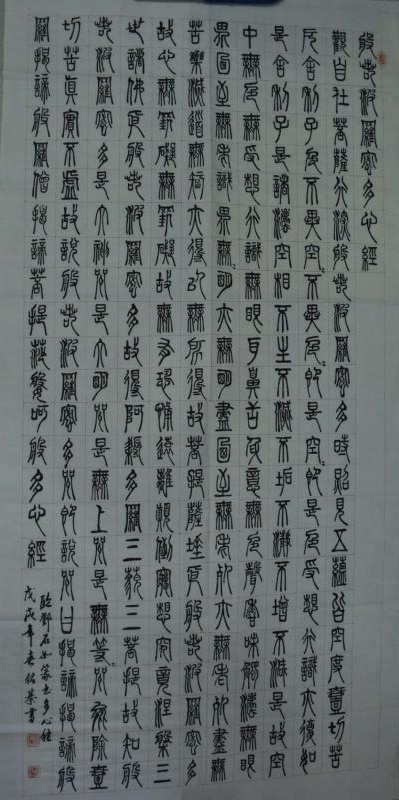 般若波羅蜜多心經
觀自在菩薩行深般若波羅蜜多時照見五蘊皆空度壹切苦
厄舍利子色不異空〻不異色〻即是空〻即是色受想行識亦復如
是舍利子是諸法空相不生不滅不垢不淨不增不減是故空
中無色無受想行識無眼耳鼻舌身意無色聲香味觸法無眼
界乃至無意識界無〻明亦無明盡乃至無老死亦無老死盡無
苦集滅道無智亦無得以無所得故菩提薩埵依般若波羅蜜多
故心無罣礙無罣礙故無有恐怖遠離顛倒夢想究竟涅槃三
世諸佛依般若波羅蜜多故得阿耨多羅三藐三菩提故知般
若波羅蜜多是大神咒是大明咒是無上咒是無等〻咒能除壹
切苦真實不虛故說般若波羅蜜多咒即說咒曰揭諦揭諦般
羅揭諦般羅僧揭諦菩提薩婆呵般多心經
臨鄧石如篆書心經
戊戌年春紹榮書